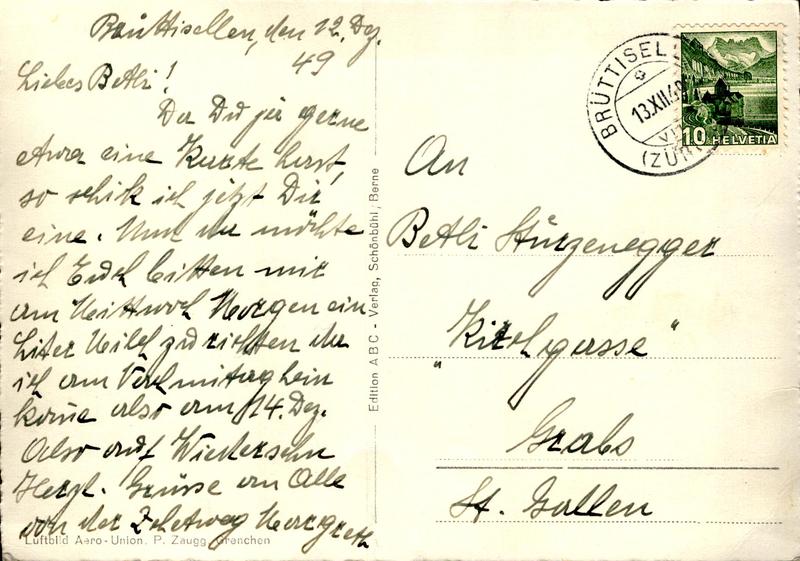 Brüttisellen, den 12. Dez.
49
Liebes Betli!
Da Du ja gerne
eine Karte hast,
so schik ich jetzt Dir
eine. Nun da möchte
ich Euch bitten mir
am Mittwoch Morgen ein
Liter Milch zu richten da
ich am Vormitag heim
kome also am 14. Dez.
Also auf Wiedersehn
Herzl. Grüsse an Alle
von der
Luftbild Aero-Union. P. Zaugg, Grenchen
Edition ABC - Verlag, Schönbühl, Berne
BRÜTTISEL
13.XII.49
(ZÜR
10 HELVETIA
An
Betli Stürzenegger
„Kirchgasse"
Grabs
St. Gallen